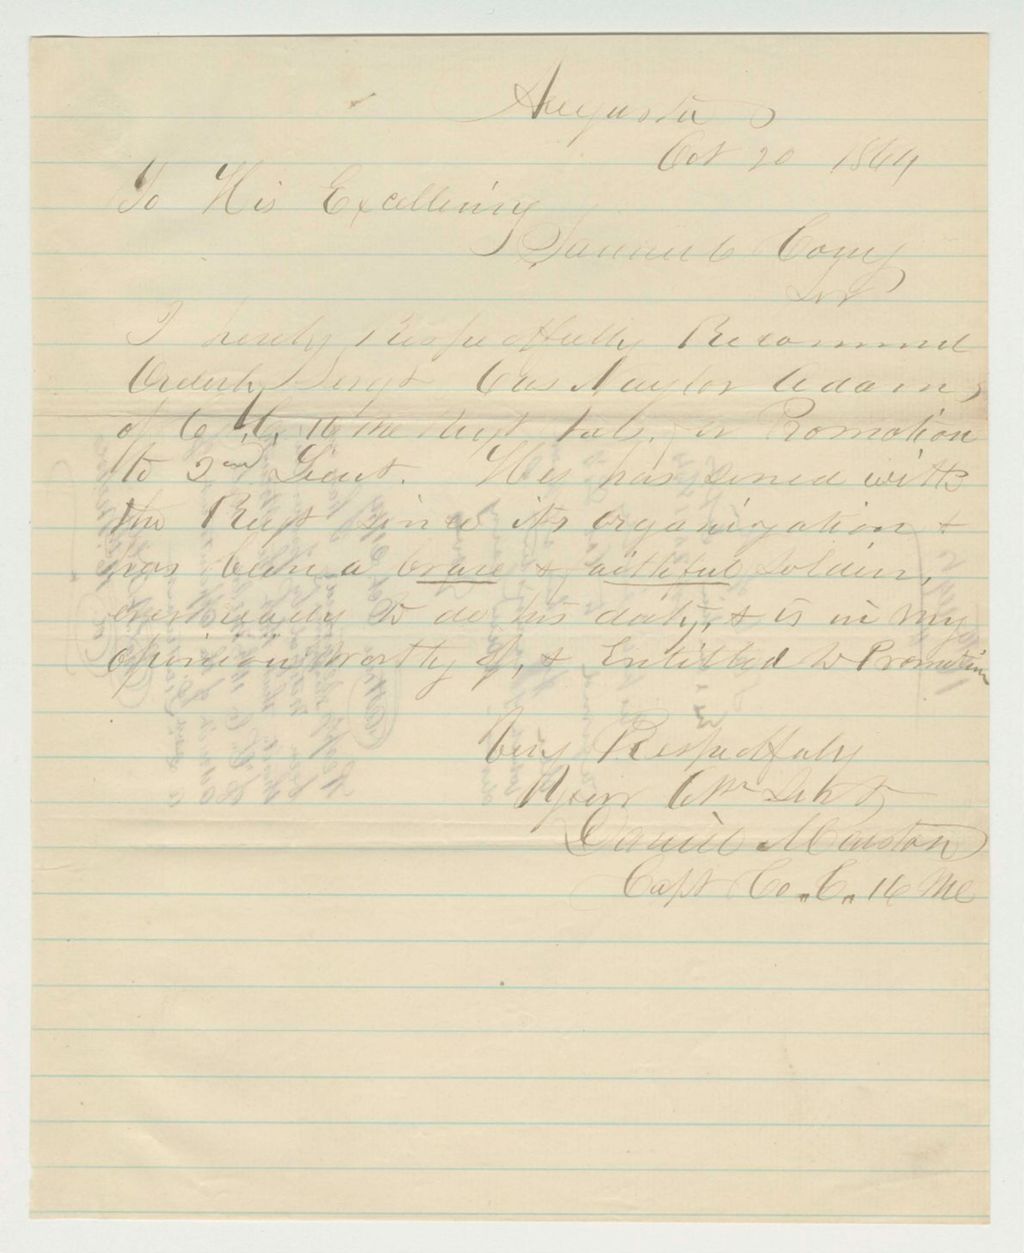 Augusta
Oct 20 1864
To His Excellency
Samuel Cony
Sir
I hereby Respectfully Recommend
Orderly Sergt Naylor Adams
of Co C, 16 Me Regt Vols. for Promotion
to 2nd Lieut. He has served with
the Regt since its organization &
has been a brave & faithful Soldier,
ever ready to do his duty, & is in my
opinion worthy of, & Entitled to Promotion
Very Respectfuly
Your Obt Servt
Daniel Marston
Capt Co. C. 16 Me